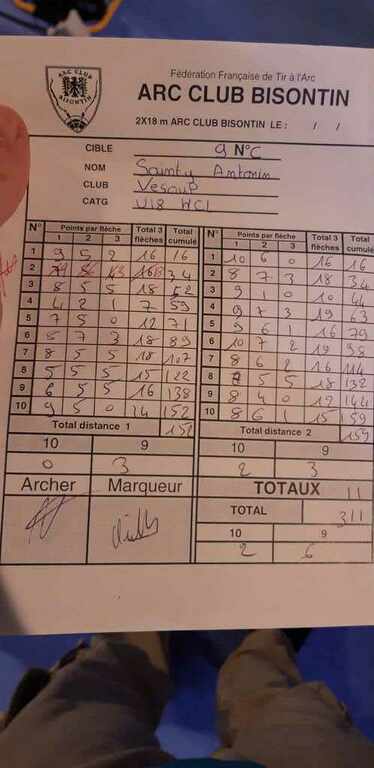 ARC CLUB
BISONTIN
Fédération Française de Tir à l'Arc
ARC CLUB BISONTIN
2X18 m ARC CLUB BISONTIN LE : / /
CIBLE 9 N°C
NOM Antonin
CLUB Vesoul
CATG U18 HCL
N° Points par flèche Total 3 flèches Total cumulé
1 2 3
1 9 5 2 16 16
2 34
3 8 5 5 18 52
4 4 2 1 7 59
5 7 5 0 12 71
6 8 7 3 18 89
7 8 5 5 18 107
8 5 5 5 15 122
9 6 5 5 16 138
10 9 5 0 14 152
Total distance 1 152
10 9
0 3
N° Points par flèche Total 3 flèches Total cumulé
1 2 3
1 10 6 0 16 16
2 8 7 3 18 34
3 9 1 0 10 44
4 9 7 3 19 63
5 9 6 1 16 79
6 10 7 2 19 98
7 8 6 2 16 114
8 8 5 5 18 132
9 8 4 0 12 144
10 8 6 1 15 159
Total distance 2 159
10 9
2 3
Archer Marqueur
TOTAUX 11
TOTAL 311
10 9
2 6